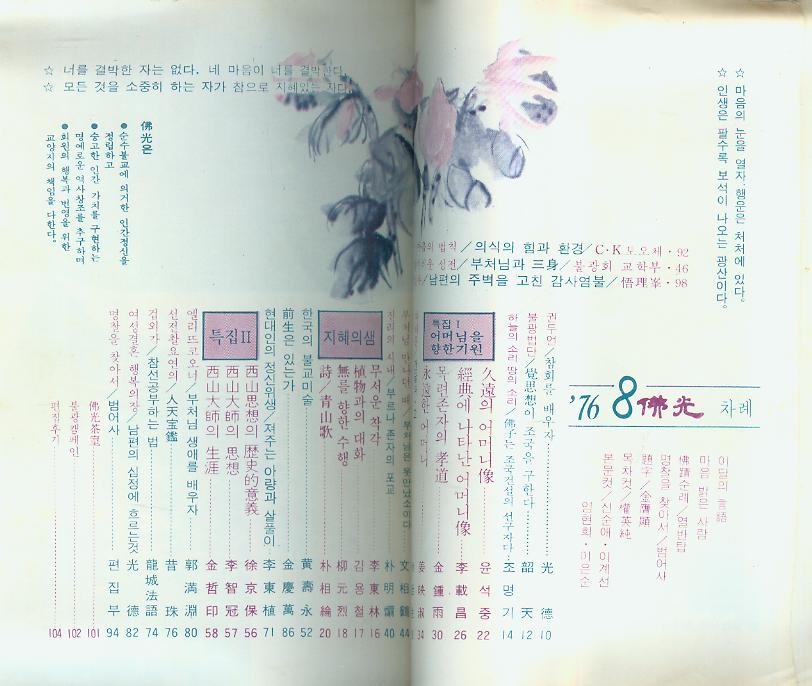 ☆ 마음의 눈을 열자. 행운은 처처에 있다.
☆ 인생은 팔수록 보석이 나오는 광산이다.
☆ 너를 결박한 자는 없다. 네 마음이 너를 결박한다.
☆ 모든 것을 소중히 하는 자가 참으로 지혜있는 자다.
佛光은
● 순수불교에 의거한 인간정신을
정립하고
● 숭고한 인간 가치를 구현하는
명예로운 역사창조를 추구하며
● 회원의 행복과 번영을 위한
교양지의 책임을 다한다.
'76 8 佛光 차례
이달의 言語
마음 밝은 사람
佛蹟순례／열반탑
명찰을 찾아서／범어사
題字／金膺顯
목차컷／權英純
본문컷／신순애・이계선
임현희・이은순
법칙／의식의 힘과 환경／C・K 토오체・92
성전／부처님과 三身／불광회 교학부・46
남편의 주벽을 고친 감사염불／悟理峯・98
권두언／참회를 배우자 光德 10
불광법단／覺思想이 조국을 구한다 韶天 12
하늘의 소리 땅의 소리／佛子는 조국건설의 선구자다 조명기 14
특집 I
어머님을
향한기원
久遠의 어머니像 윤석중 22
經典에 나타난 어머니像 李載昌 26
목련존자의 孝道 金鍾雨 30
永遠한 어머니 34
44
진리의 시내／부루나존자의 포교 朴明壎 40
지혜의샘
무서운 착각 李東林 16
植物과의 대화 김용철 17
無를 향한 수행 柳元烈 18
詩／青山歌 朴相綸 20
한국의 불교미술 黃壽永 52
前生은 있는가 金慶萬 86
현대인의 정신위생／져주는 아량과 살풀이 李東植 71
특집 II
西山思想의 歷史的意義 徐京保 56
西山大師의 思想 李智冠 57
西山大師의 生涯 金哲印 58
엘리뜨코오너／부처님 생애를 배우자 郭滿淵 80
선전촬요연의／人天宝鑑 昔珠 76
겁외가／참선공부하는 법 龍城法語 74
여성결혼 행복의장／남편의 심정에 흐르는것 光德 82
명찰을 찾아서／범어사 편집부 94
佛光茶室 101
불광캠페인 102
편집후기 104